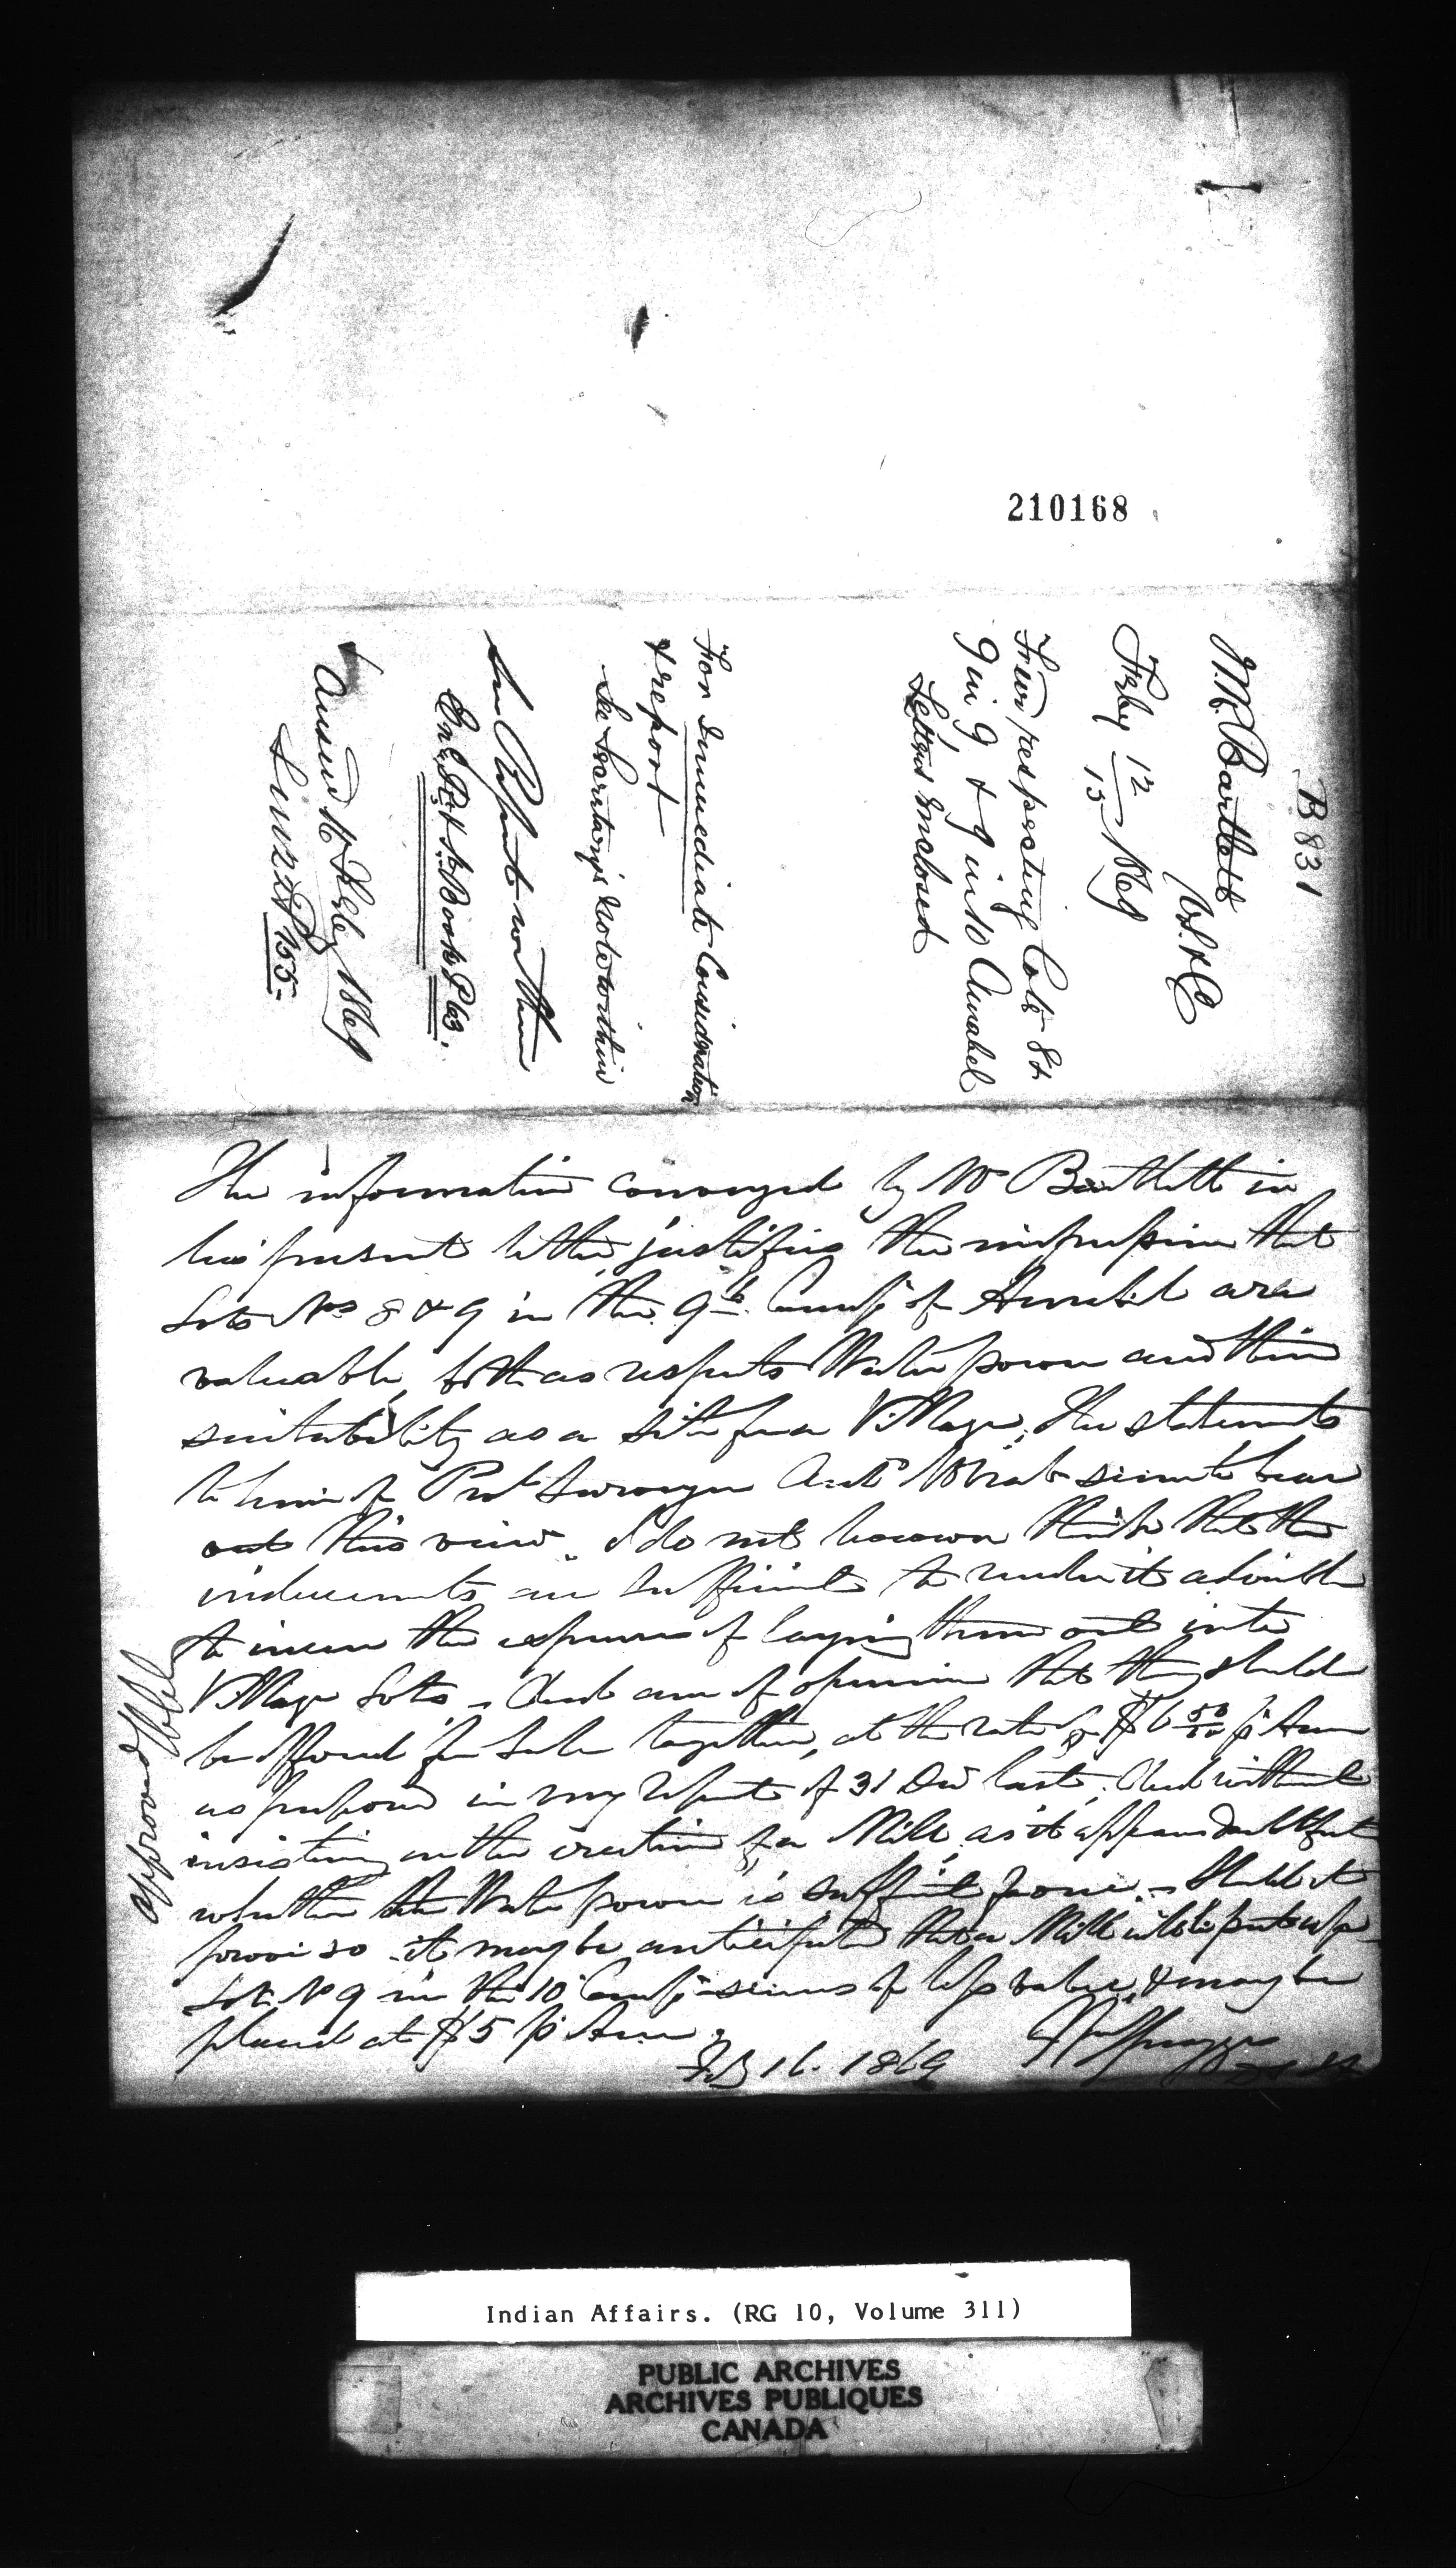 210168
B 831
W. R. Bartlett
V. S. I. C.
Feby 12/15 1869
Further respecting Lots 8 &
9 in 9 & 9 in 10 Amabel
Letters Inclosed
For Immediate Consideration
& report
See Secretary's note within
See Report within
Ent. R. Book P 63.
Answd 16 Feby 1869
P 155
The information conveyed by Mr Bartlett in
his present letter, justifies the impression that
Lots Nos 8 & 9 in the 9th Concess. of Amabel are
valuable, both as respects Water power and their
suitability as a site for a Village; the statements
to him of Prov. Surveyor seem to bear
out this view. I do not however think that the
inducements are sufficient to render it advisable
to incur the expense of laying them out into
Village Lots, And am of opinion that they should
be offered for Sale together, at the rate of $6 50/100 p Acre
as proposed in my report of 31 Dec last; And without
insisting on the erection of a Mill, as it appears doubtful
whether the Water power is sufficient for one. Should it
prove so it may be anticipated that a Mill will be put up
Lot No 9 in the 10 Concess. seems of less value, & may be
placed at $5 p Acre.
Feb 16. 1869
approved
Indian Affairs. (RG 10, Volume 311)
PUBLIC ARCHIVES
ARCHIVES PUBLIQUES
CANADA